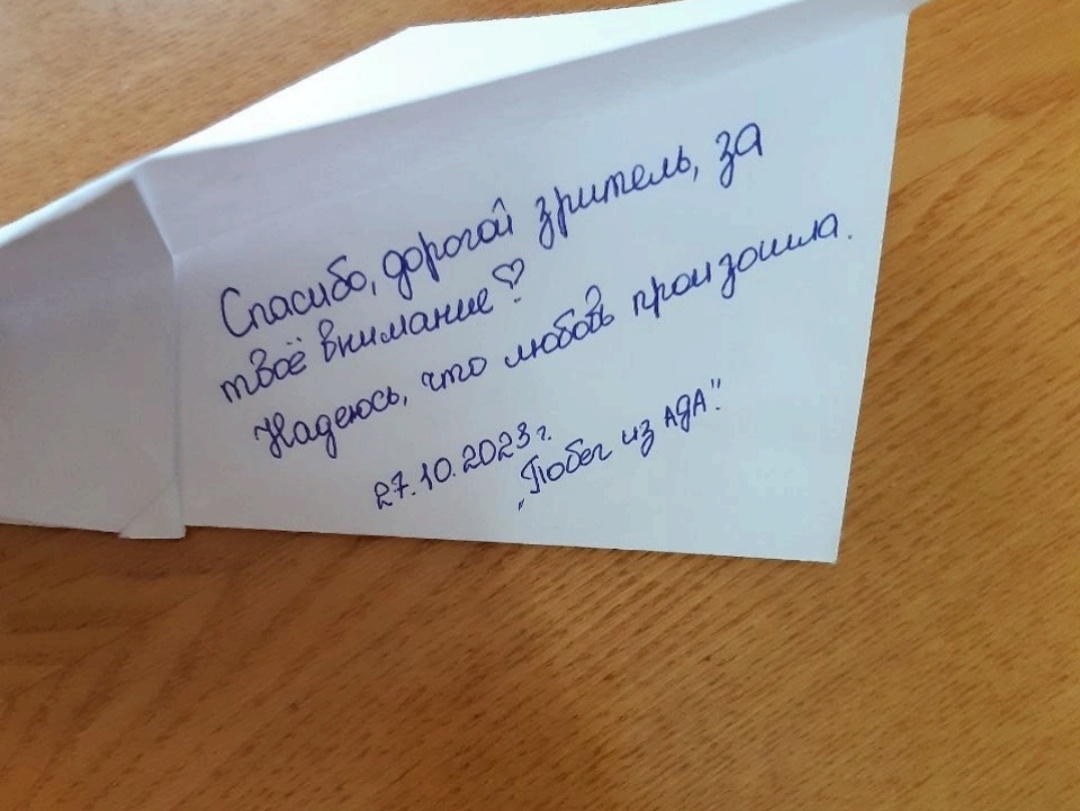 Спасибо, дорогой зритель, за
твоё внимание ♡
Надеюсь, что любовь произошла.
27.10.2023 г.
„Побег из АДА".